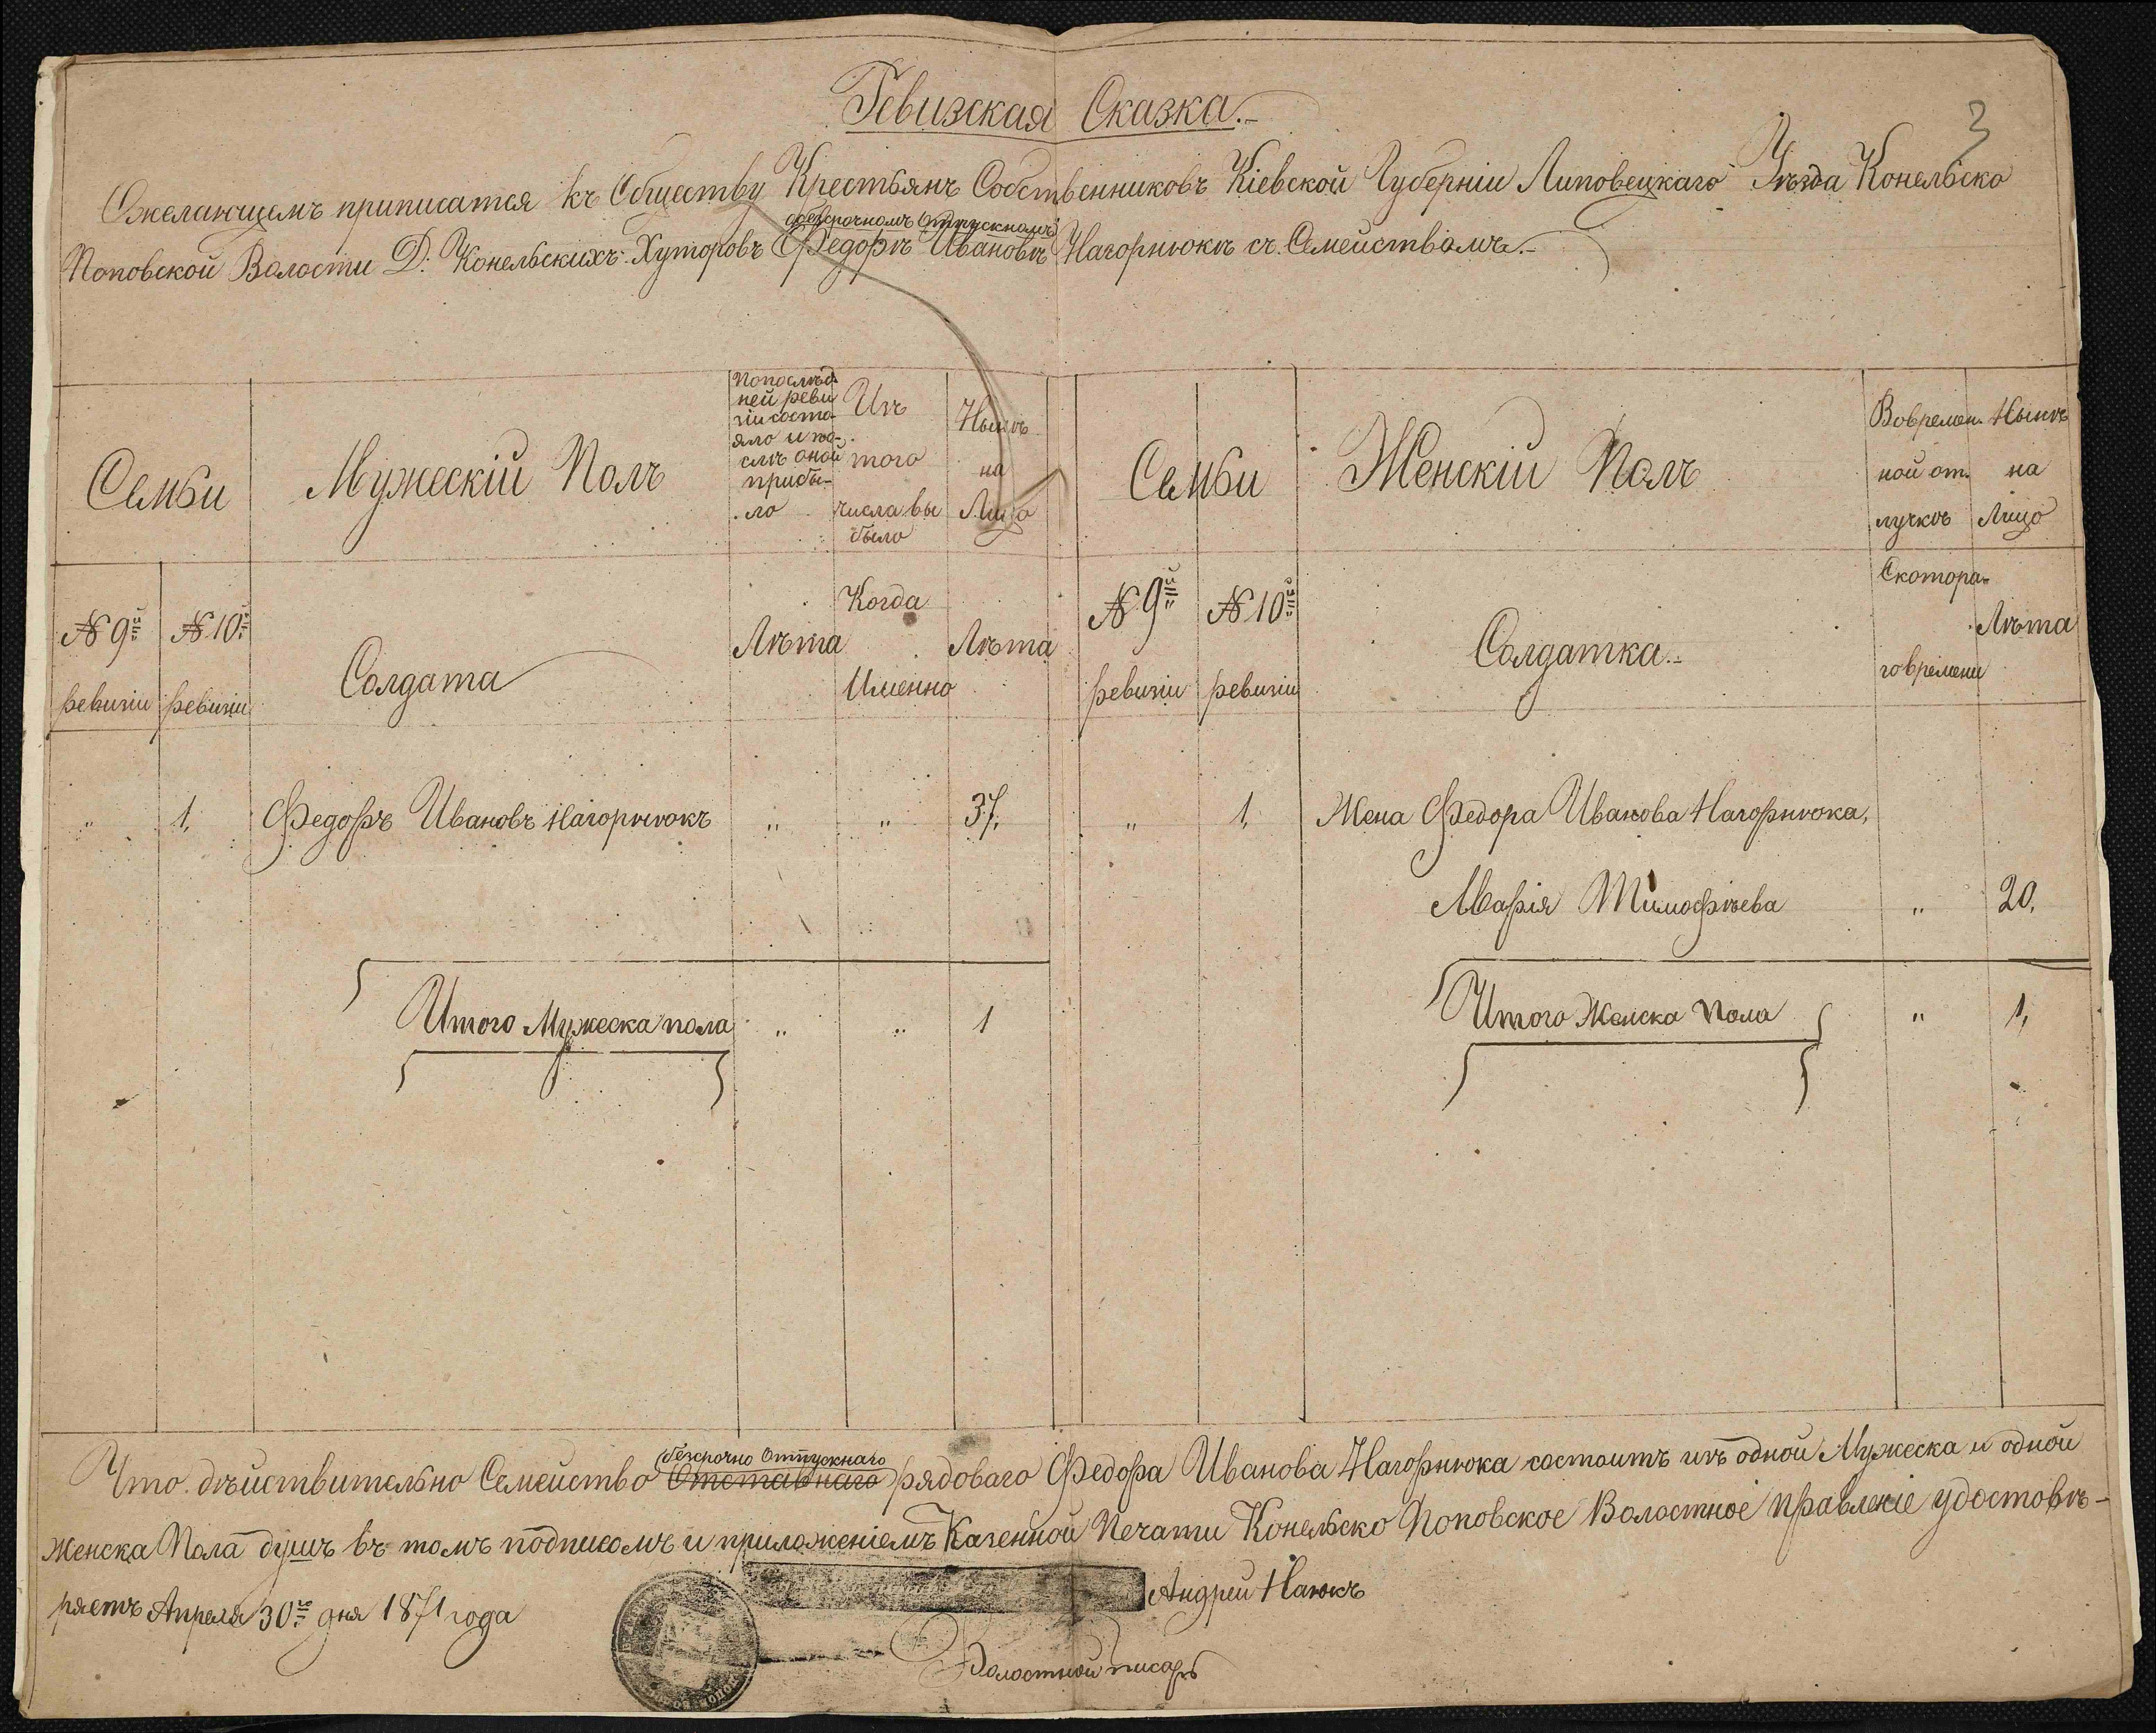 Ревизская Сказка.-
3
Ожелающемъ приписатся къ Обществу Крестьянъ Собственниковъ Кіевской Губерніи Липовецкаго Уѣзда Конельско
безсрочномъ Отпускномъ
Поповской Волости Д: Конельскихъ Хуторовъ Федорѣ Ивановѣ Нагорнюкѣ съ Семействомъ.-
Семьи
Мужескій Полъ
Попослѣд
ней реви
зіи состо-
яло и по-
слѣ оной
прибы-
ло
Изъ
того
числа вы
было
Нынѣ
на
Лицо
Семьи
Женскій Полъ
Вовремен.
ной от-
лучкѣ
Нынѣ
на
Лицо
№ 9й
ревизіи
№ 10й
ревизіи
Солдата
Лѣта
Когда
Именно
Лѣта
№ 9й
ревизіи
№ 10й
ревизіи
Солдатка.-
Скотора-
говремени
Лѣта
" 1, Федоръ Ивановъ Нагорнюкъ " " 37, " 1, Жена Федора Иванова Нагорнюка,
Марія Тимофѣева " 20,
Итого Мужеска пола " " 1 Итого Женска Пола " 1,
безсрочно Отпускнаго
Что дѣйствительно Семейство Отставнаго рядоваго Федора Иванова Нагорнюка состоитъ изъ одной Мужеска и одной
Женска Пола душъ въ томъ подписомъ и приложеніемъ Казенной Печати Конельско Поповское Волостное правленіе удостовѣ-
ряетъ Апреля 30го дня 1871 года
Андрей
Волостной писарь